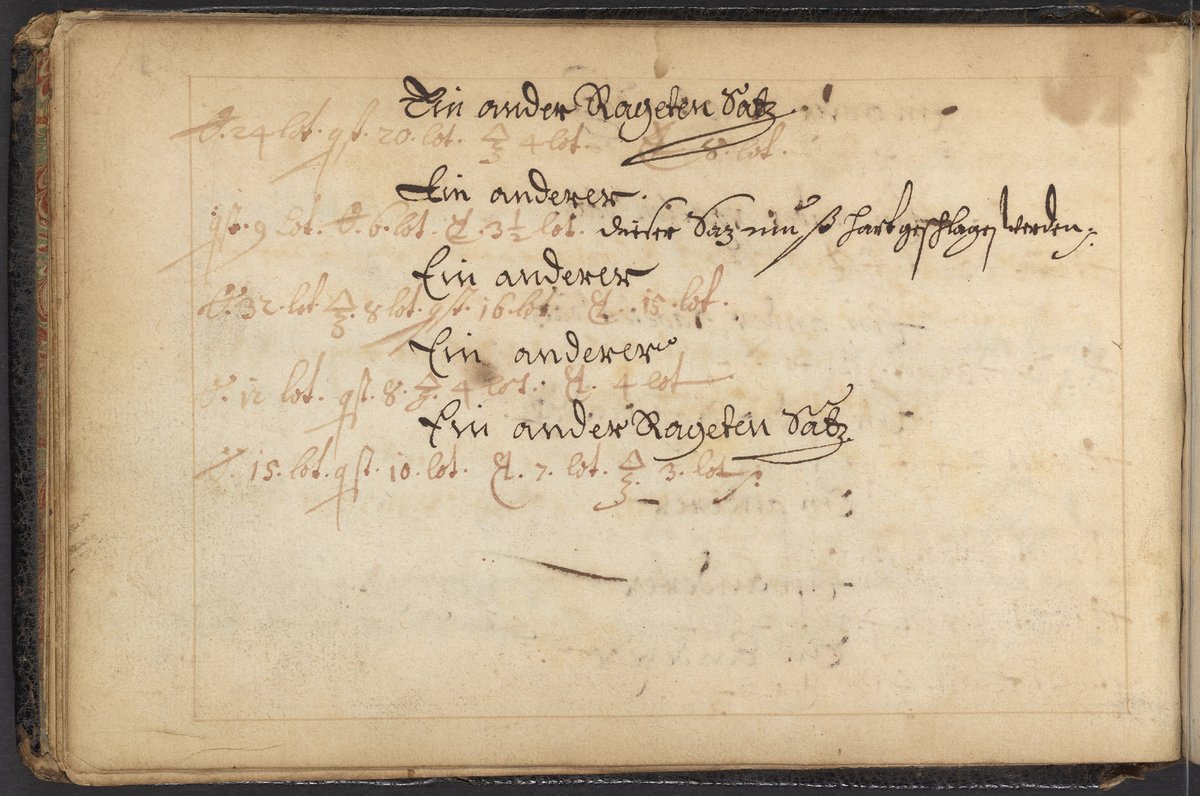 Ein ander Rageten Satz.
24 lot. gst. 20. lot. 🜍 4 lot. 8. lot.
Ein anderer.
gst. 9 lot. 6. lot. 3 ½ lot. dieser Saz muß hart geschlagen werden
Ein anderer
32. lot 🜍. 8 lot. gst. 16. lot. 15. lot.
Ein anderer
12 lot. gst. 8. 🜍. 4 lot. 4 lot
Ein ander Rageten Satz.
15. lot. gst. 10. lot. 7. lot. 🜍. 3. lot